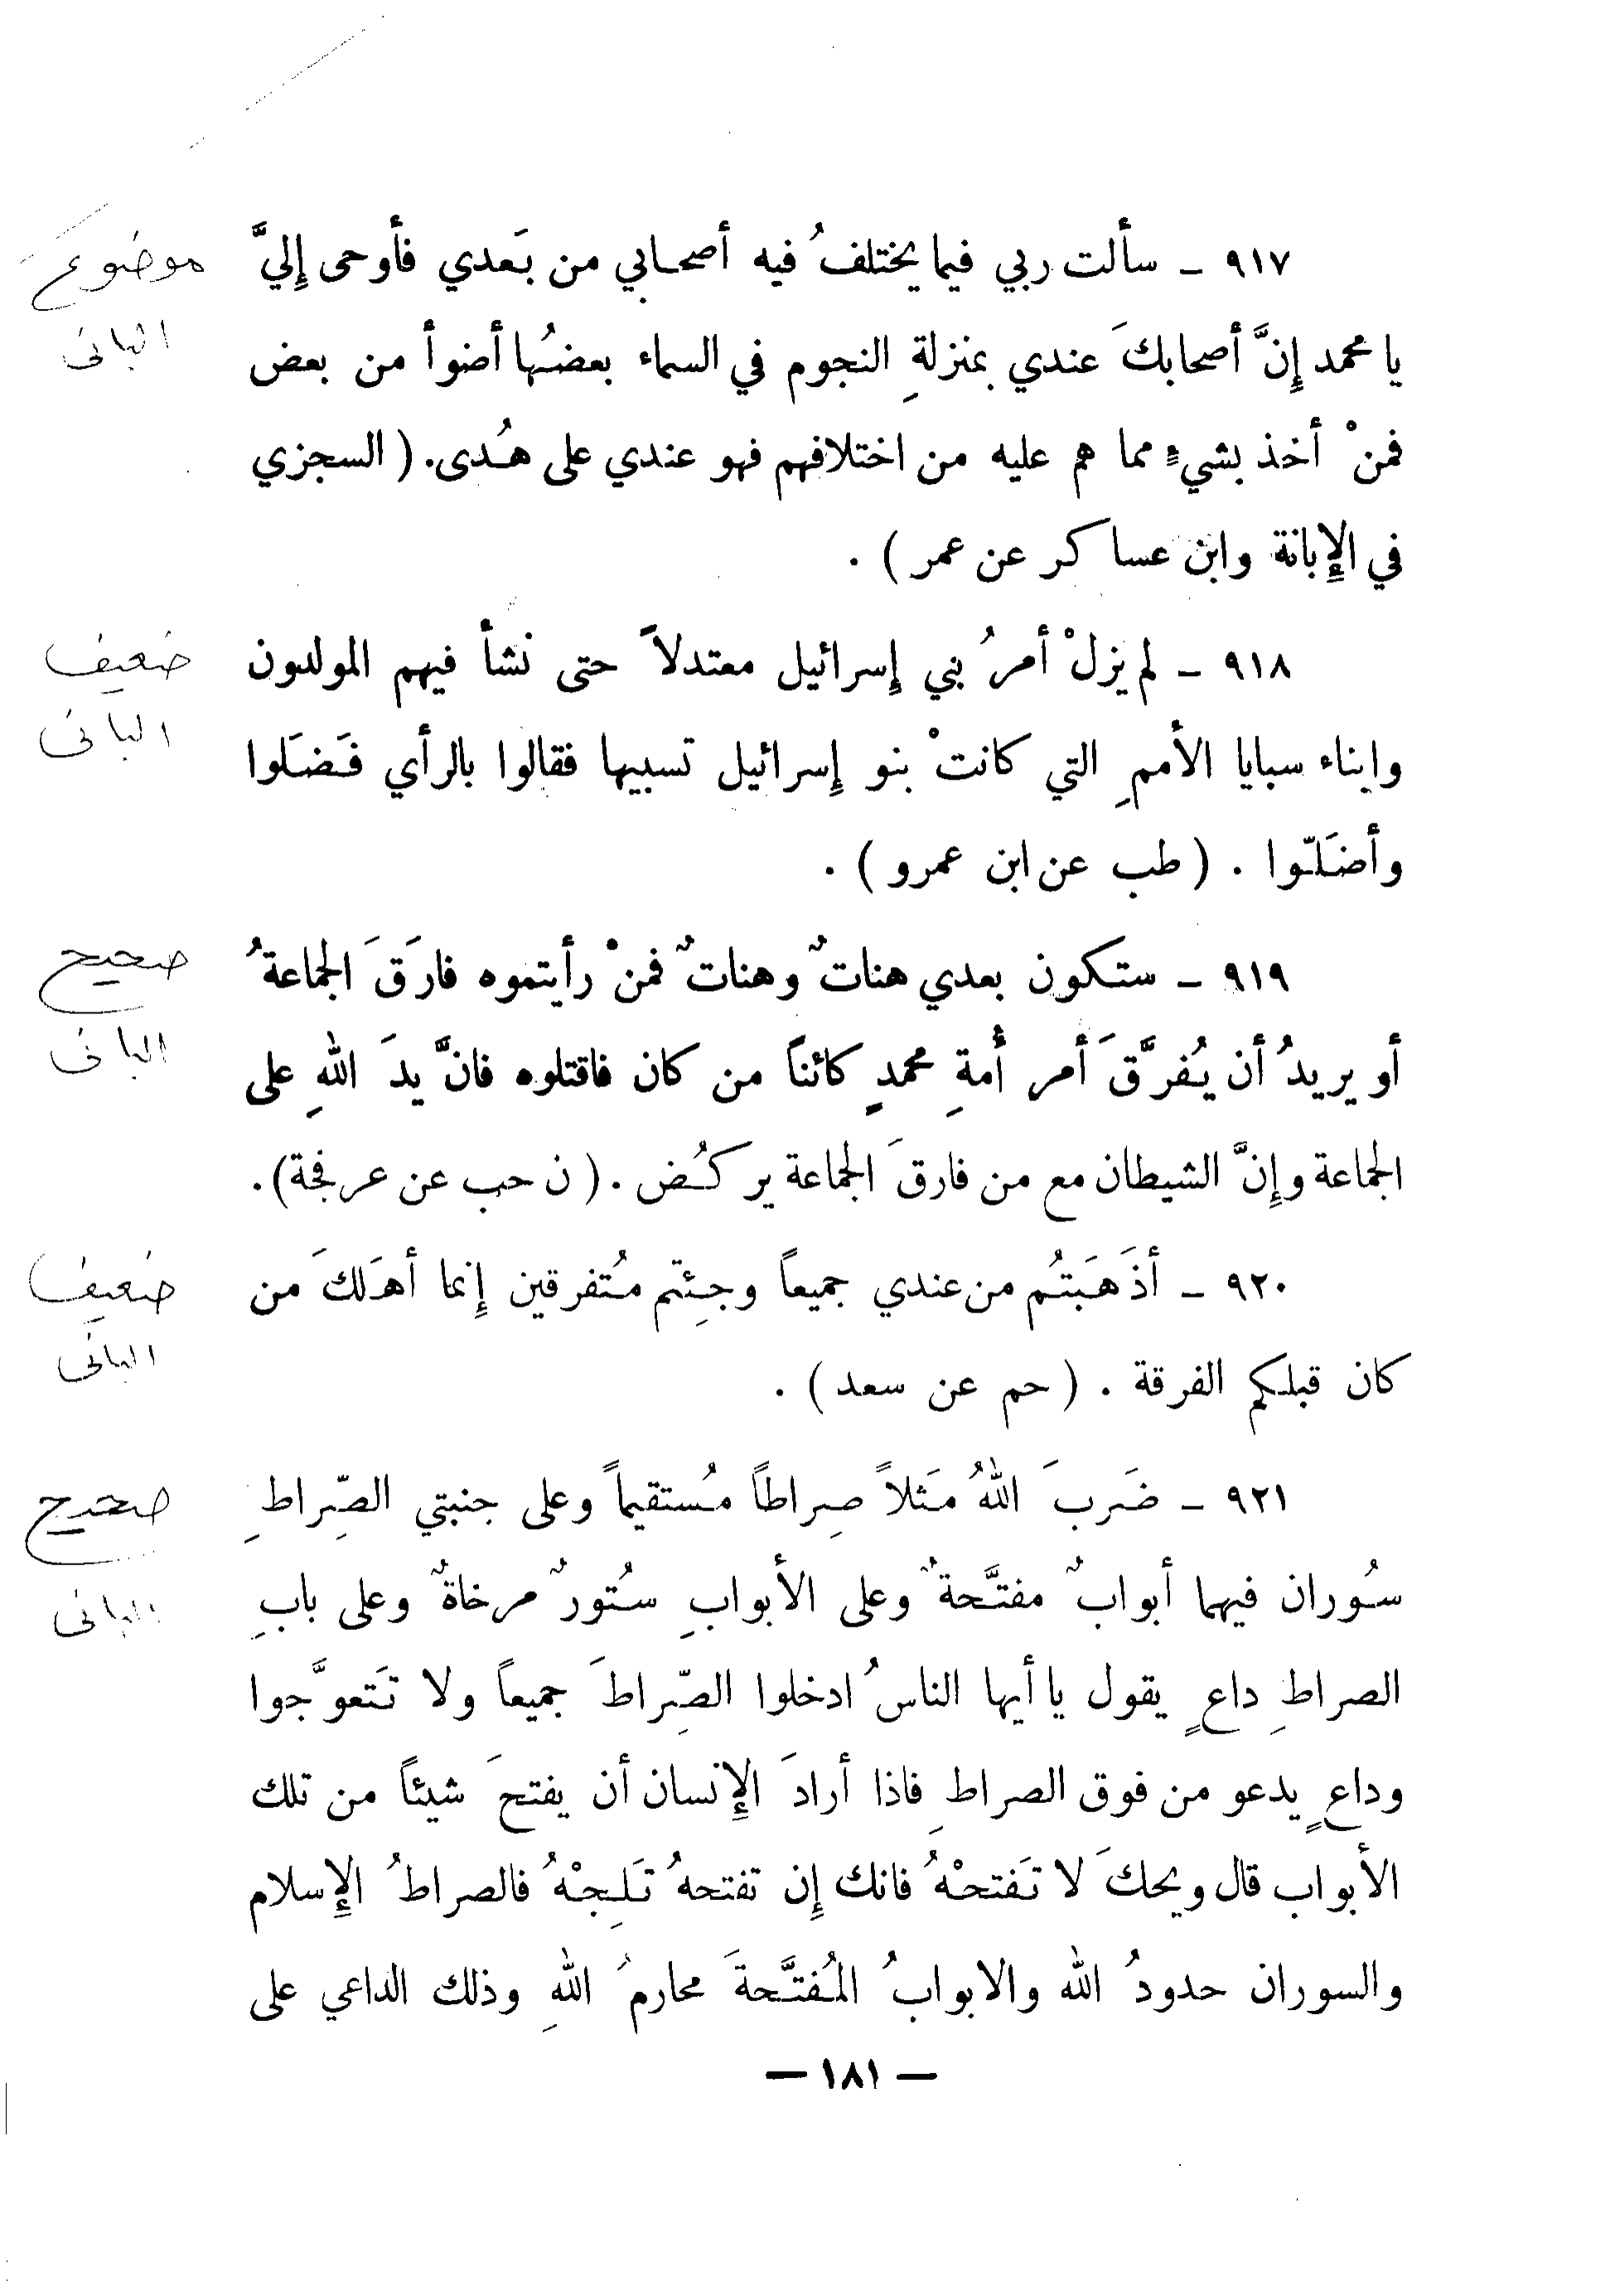 ٩١٧ ـ سألت ربي فيما يختلفُ فيه أصحابي من بَعدي فأوحى إِليَّ
موضوع
يا محمد إِنَّ أصحابكَ عندي بمنزلةِ النجوم في السماء بعضُها أضوأ من بعض
البانى
فمنْ أخذ بشيءٍ مما هم عليه من اختلافهم فهو عندي على هُدى. ( السجزي
في الإِبانة وابن عساكر عن عمر ) .
٩١٨ ـ لم يزلْ أمرُ بني إِسرائيل معتدلاً حتى نشأ فيهم المولدون
ضعيف
وابناء سبايا الأممِ التي كانتْ بنو إِسرائيل تسبيها فقالوا بالرأي فَضَلوا
البانى
وأضَلّوا . ( طب عن ابن عمرو ) .
٩١٩ ـ ستكون بعدي هناتٌ وهناتٌ فمنْ رأيتموه فارَقَ الجماعةُ
صحيح
أو يريدُ أن يُفرَّقَ أمر أُمةِ محمدٍ كائناً من كان فاقتلوه فانَّ يدَ اللهِ على
البانى
الجماعة وإِنَّ الشيطان مع من فارقَ الجماعة يركُض . ( ن حب عن عرفجة ) .
٩٢٠ ـ أذَهَبتُم من عندي جميعاً وجِئتم مُتفرقين إِنما أهَلكَ من
ضعيف
كان قبلكم الفرقة . ( حم عن سعد ) .
البانى
٩٢١ ـ ضَربَ اللهُ مَثلاً صِراطاً مُستقيماً وعلى جنبتي الصِّراطِ
صحيح
سُوران فيهما أبوابٌ مفتَّحةٌ وعلى الأبوابِ سُتورٌ مرخاةٌ وعلى بابِ
البانى
الصراطِ داعٍ يقول يا أيها الناسُ ادخلوا الصِّراطَ جميعاً ولا تَتعوَّجوا
وداعٍ يدعو من فوق الصراطِ فاذا أرادَ الإِنسان أن يفتحَ شيئاً من تلك
الأبواب قال ويحكَ لا تَفتحْهُ فانك إِن تفتحهُ تَلِجْهُ فالصراطُ الإِسلام
والسوران حدودُ الله والابوابُ المُفتَّحةَ محارمُ اللهِ وذلك الداعي على
— ١٨١ —